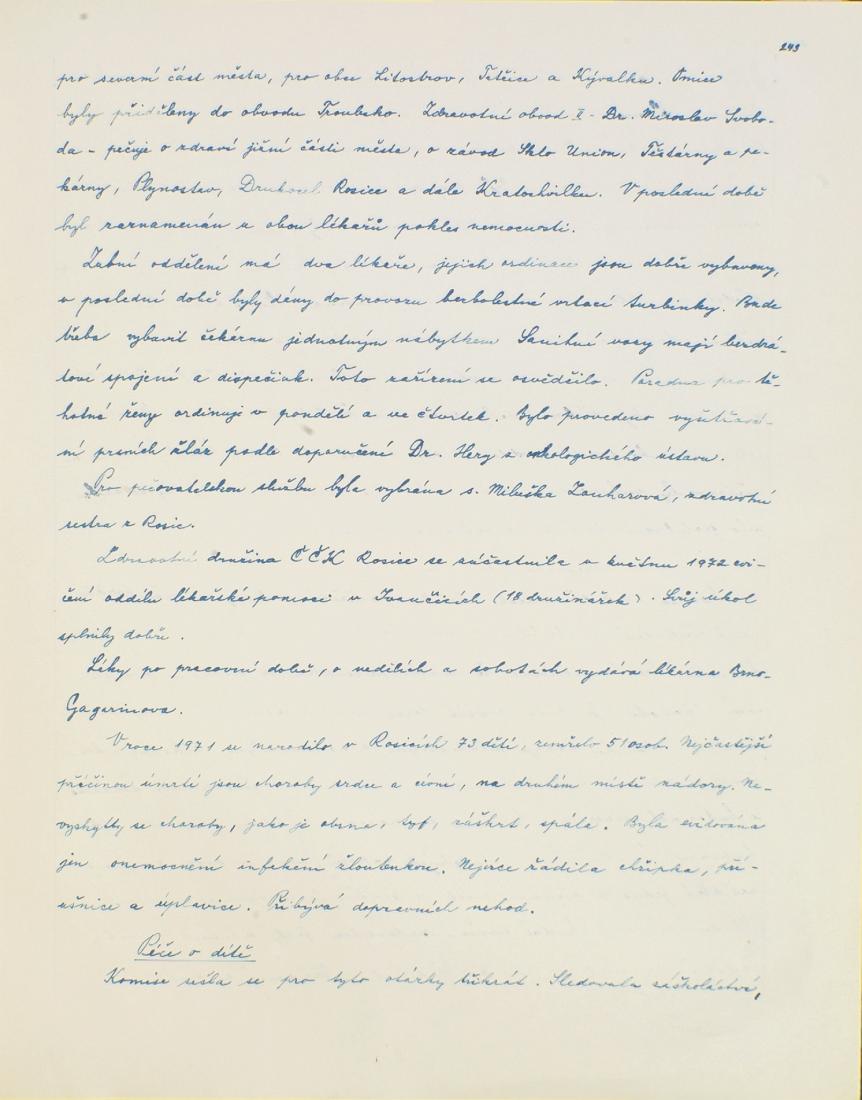 243
pro severní část města, pro obce Litostrov, Tetčice a Kývalku. Omice
byly přiděleny do obvodu Troubsko. Zdravotní obvod II - Dr. Miroslav Svobo-
da - pečuje o zdraví jižní části města, o závod Sklo Union, Těstárny a pe-
kárny, Plynostav, Rosice a dále Kratochvilku. V poslední době
byl zaznamenán u obou lékařů pokles nemocnosti.
Zubní oddělení má dva lékaře, jejich ordinace jsou dobře vybaveny,
v poslední době byly dány do provozu bezbolestné vrtací turbinky. Bude
třeba vybavit čekárnu jednotným nábytkem Sanitní vozy mají bezdrá-
tové spojení a dispečink. Toto zařízení se osvědčilo. Poradna pro tě-
hotné ženy ordinuje v pondělí a ve čtvrtek. Bylo provedeno vyšetřová-
ní prsních žláz podle doporučení Dr. Hery z onkologického ústavu.
Pro pečovatelskou službu byla vybrána s. Miluška Zouharová, zdravotní
sestra z Rosic.
Zdravotní družina ČČK Rosice se zúčastnila v květnu 1972 cvi-
čení oddílu lékařské pomoci v Ivančicích (18 družinářek). Svůj úkol
splnily dobře.
Léky po pracovní době, o nedělích a sobotách vydává lékárna Brno-
Gagarinova.
V roce 1971 se narodilo v Rosicích 73 dětí, zemřelo 51 osob. Nejčastější
příčinou úmrtí jsou choroby srdce a cévní, na druhém místě nádory. Ne-
vyskytly se choroby, jako je obrna, tyf, záškrt, spála. Byla evidována
jen onemocnění infekční žloutenkou. Nejvíce řádila chřipka, pří-
ušnice a úplavice. Přibývá dopravních nehod.
Péče o dítě
Komise sešla se pro tyto otázky třikrát. Sledovala záškoláctví,